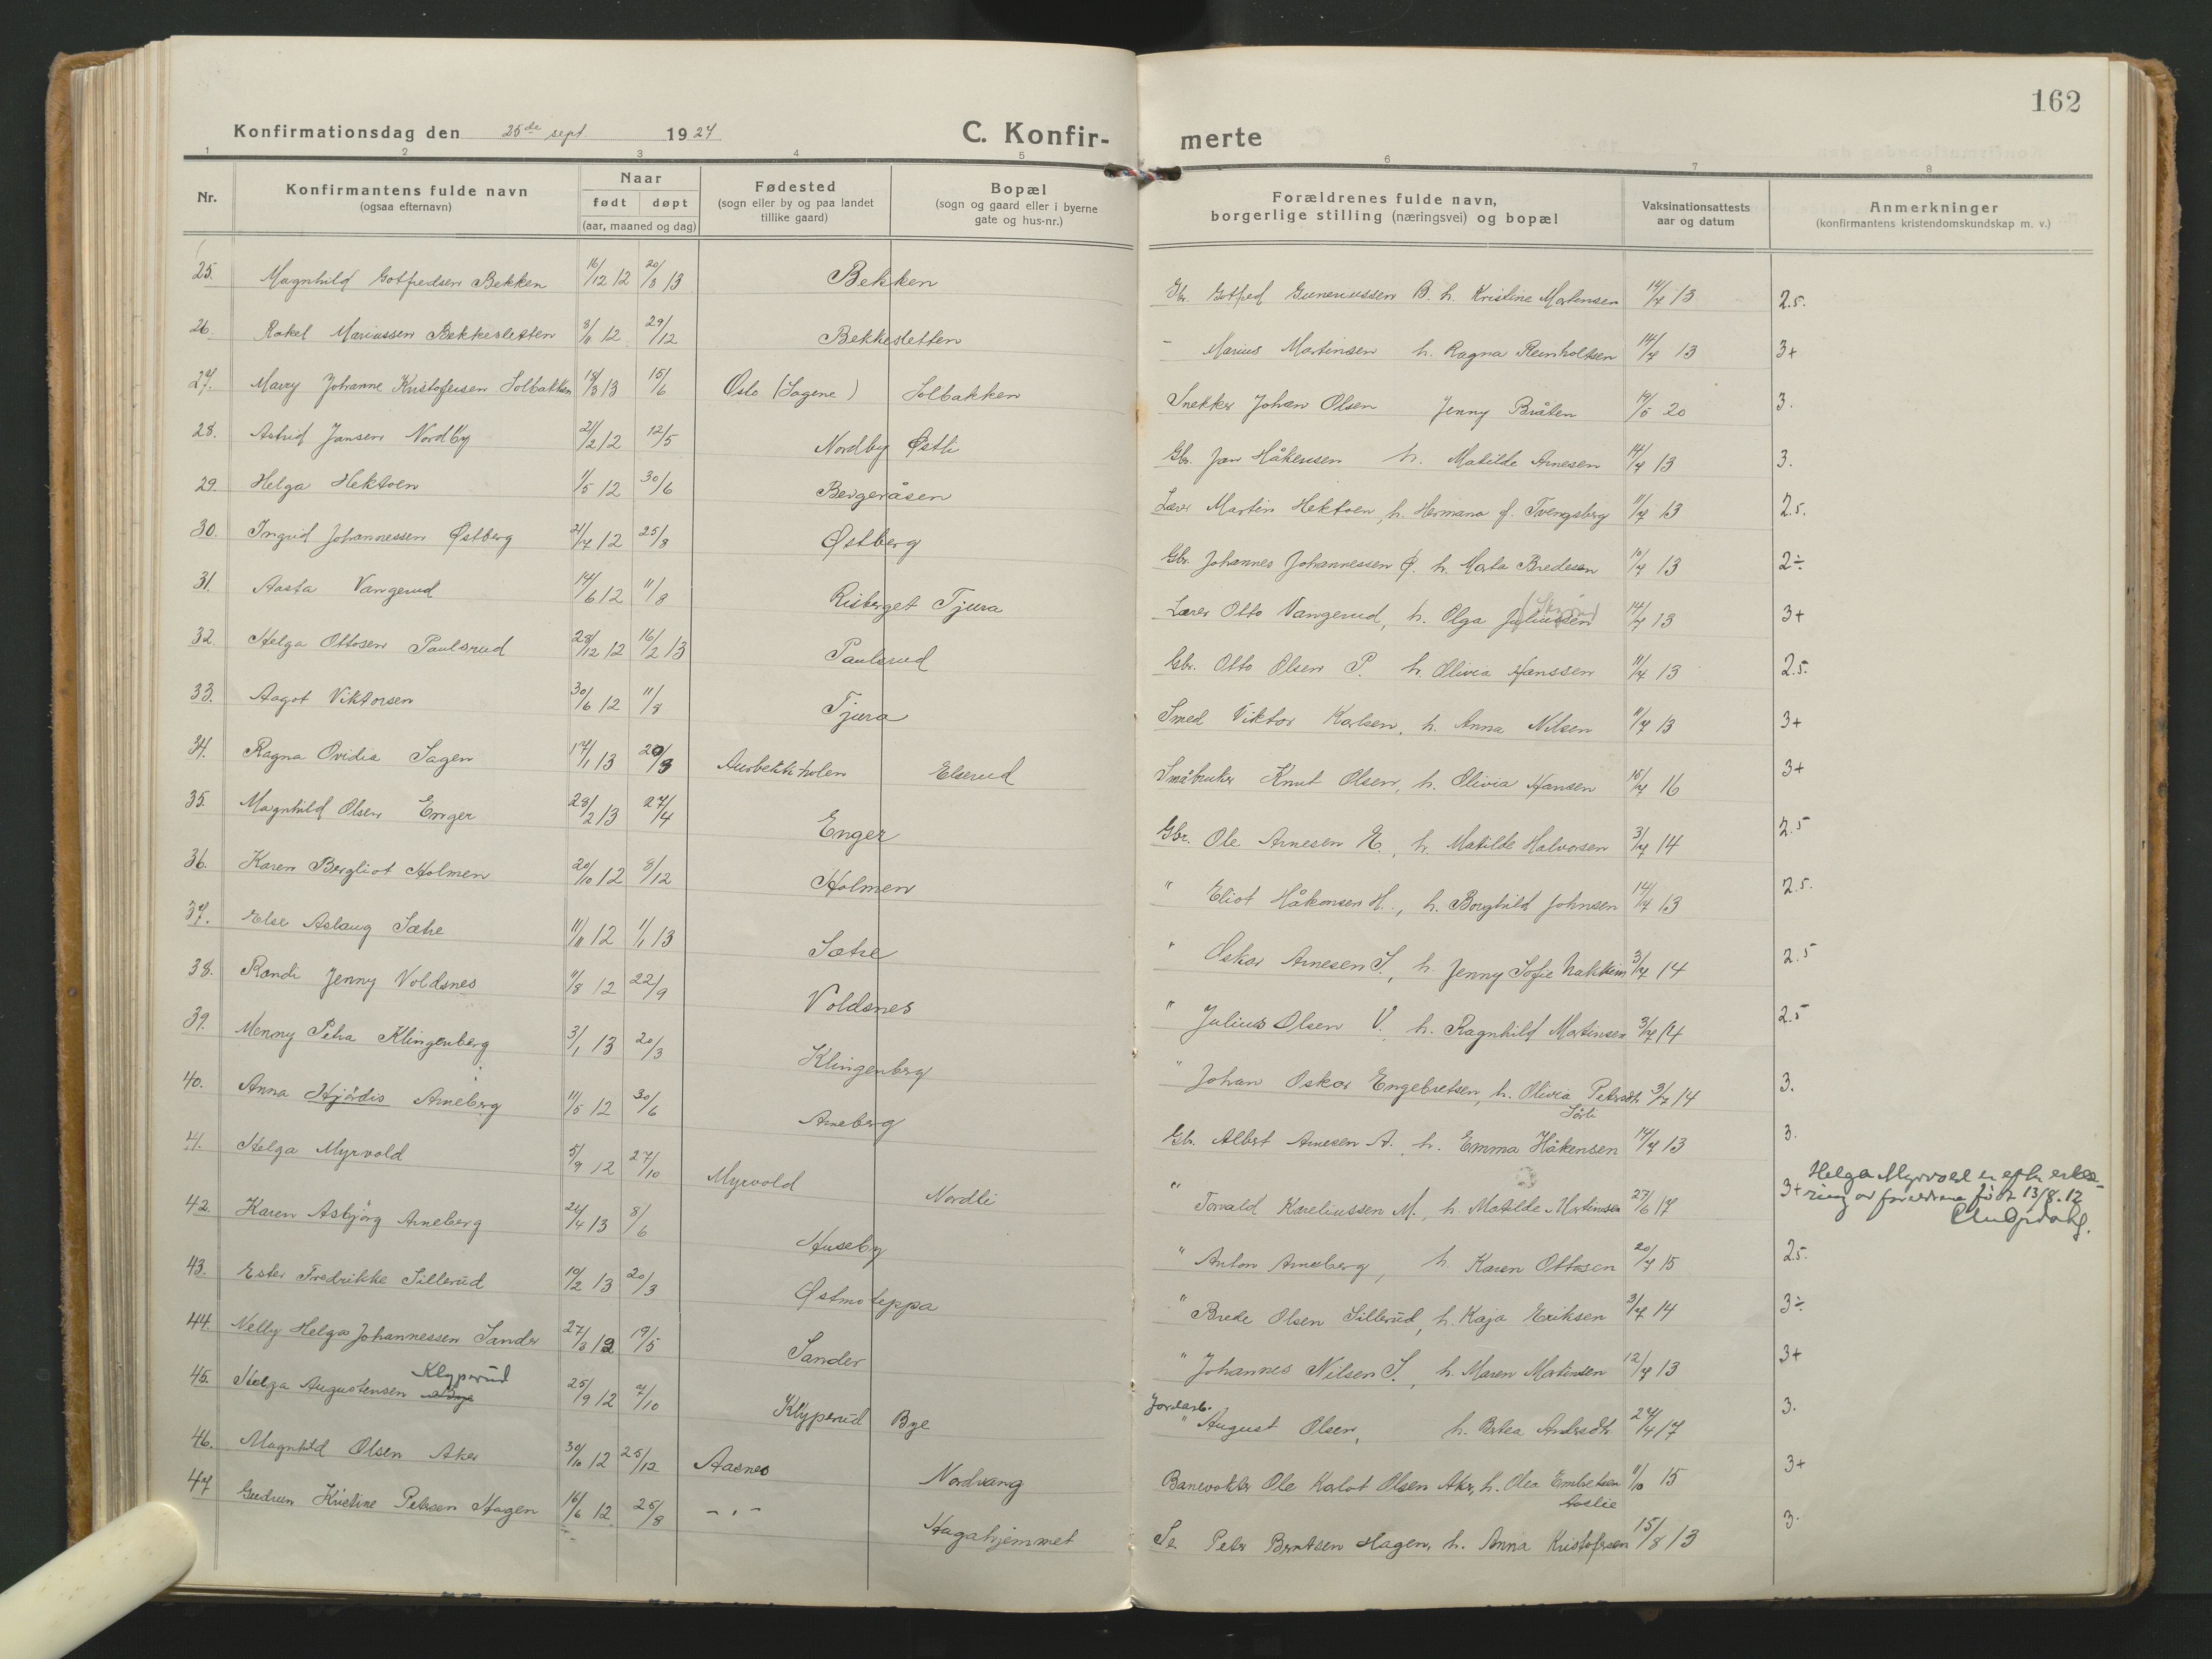 162
Konfirmationsdag den 25de sept. 1927
C. Konfir-
merte
1 2 3 4 5 6 7 8
Nr.
Konfirmantens fulde navn
(ogsaa efternavn)
Naar
født døpt
(aar, maaned og dag)
Fødested
(sogn eller by og paa landet
tillike gaard)
Bopæl
(sogn og gaard eller i byerne
gate og hus-nr.)
Forældrenes fulde navn,
borgerlige stilling (næringsvei) og bopæl
Vaksinationsattests
aar og datum
Anmerkninger
(konfirmantens kristendomskundskap m. v.)
25. Magnhild Gotfredsen Bekken 16/12 12 20/3 13 Bekken Gbr. Gotfred Guneriussen B. h. Kristine Martinsen 14/7 13 2.5.
26. Rakel Mariussen Bekkesletten 8/11 12 29/12 Bekkesletten - Marius Martinsen h. Ragna Reinholtsen 14/7 13 3+
27. Marry Johanne Kristofersen Solbakken 18/3 13 15/6 Oslo (Sagene) Solbakken Snekker Johan Olsen Jenny Bråten 19/5 20 3.
28. Astrid Jansen Nordby 21/2 12 12/5 Nordby Østli Gbr. Jan Håkensen h. Matilde Arnesen 14/7 13 3.
29. Helga Hektoen 1/5 12 30/6 Bergeråsen Lærer Martin Hektoen, h. Hermana f. Tvengsberg 11/7 13 2.5.
30. Ingrid Johannessen Østberg 21/7 12 25/8 Østberg Gbr. Johannes Johannessen Ø. h. Marta Bredesen 10/7 13 2÷
31. Aasta Vangerud 14/6 12 11/8 Risberget Tjura Lærer Otto Vangerud, h. Olga Juliussen 14/7 13 3+
32. Helga Ottosen Paulsrud 28/12 12 16/2 13 Paulsrud Gbr. Otto Olsen P. h. Olivia Hanssen 11/7 13 2.5.
33. Aagot Viktorsen 30/6 12 11/8 Tjura Smed Viktor Karlsen, h. Anna Nilsen 11/7 13 3+
34. Ragna Ovidia Sagen 17/1 13 20/3 Aurbekkholen Elserud Småbruker Knut Olsen, h. Olivia Hansen 10/7 16 3+
35. Magnhild Olsen Enger 28/2 13 27/4 Enger Gbr. Ole Arnesen E., h. Matilde Halvorsen 3/7 14 2.5
36. Karen Bergliot Holmen 20/10 12 8/12 Holmen " Eliot Håkonsen H., h. Borghild Johnsen 14/7 13 2.5.
37. Else Aslaug Sætre 11/11 12 1/1 13 Sætre " Oskar Arnesen S., h. Jenny Sofie Nakkim 3/7 14 2.5
38. Randi Jenny Voldsnes 11/8 12 22/9 Voldsnes " Julius Olsen V. h. Ragnhild Martinsen 3/7 14 2.5
39. Menny Petra Klingenberg 3/1 13 20/3 Klingenberg " Johan Oskar Engebretsen, h. Olivia Petersdtr. 3/7 14 3.
Sørli
40. Anna Hjørdis Arneberg 11/5 12 30/6 Arneberg Gbr. Albert Arnesen A., h. Emma Håkensen 14/7 13 3.
41. Helga Myrvold 5/9 12 27/10 Myrvold Nordli " Torvald Kareliussen M., h. Matilde Martinsen 27/6 17 3+ Helga Myrvold er efter erklæ-
ring av foreldrene født 13/8. 12
42. Karen Asbjørg Arneberg 24/4 13 8/6 Huseby " Anton Arneberg, h. Karen Ottosen 20/7 15 2.5.
43. Ester Fredrikke Sillerud 10/2 13 20/3 Østmoteppa " Brede Olsen Sillerud, h. Kaja Eriksen 3/7 14 3÷
44. Nelly Helga Johannessen Sander 27/3 12 19/5 Sander " Johannes Nilsen S., h. Maren Martinsen 12/7 13 3+
Klyperud
45. Helga Augustensen 25/9 12 7/10 Klyperud Bye Jordarb. " August Olsen, h. Bertea Andersdtr 24/4 17 3.
46. Magnhild Olsen Aker 30/10 12 25/12 Aasnes Nordvang Banevokter Ole Karlot Olsen Aker, h. Olea Embretsen 11/10 15 3+
Aaslie
47 Gudrun Kristine Petersen Hagen 16/6 12 25/8 - " - Hagahjemmet Peter Berntsen Hagen, h. Anna Kristofersen 15/8 13 3.